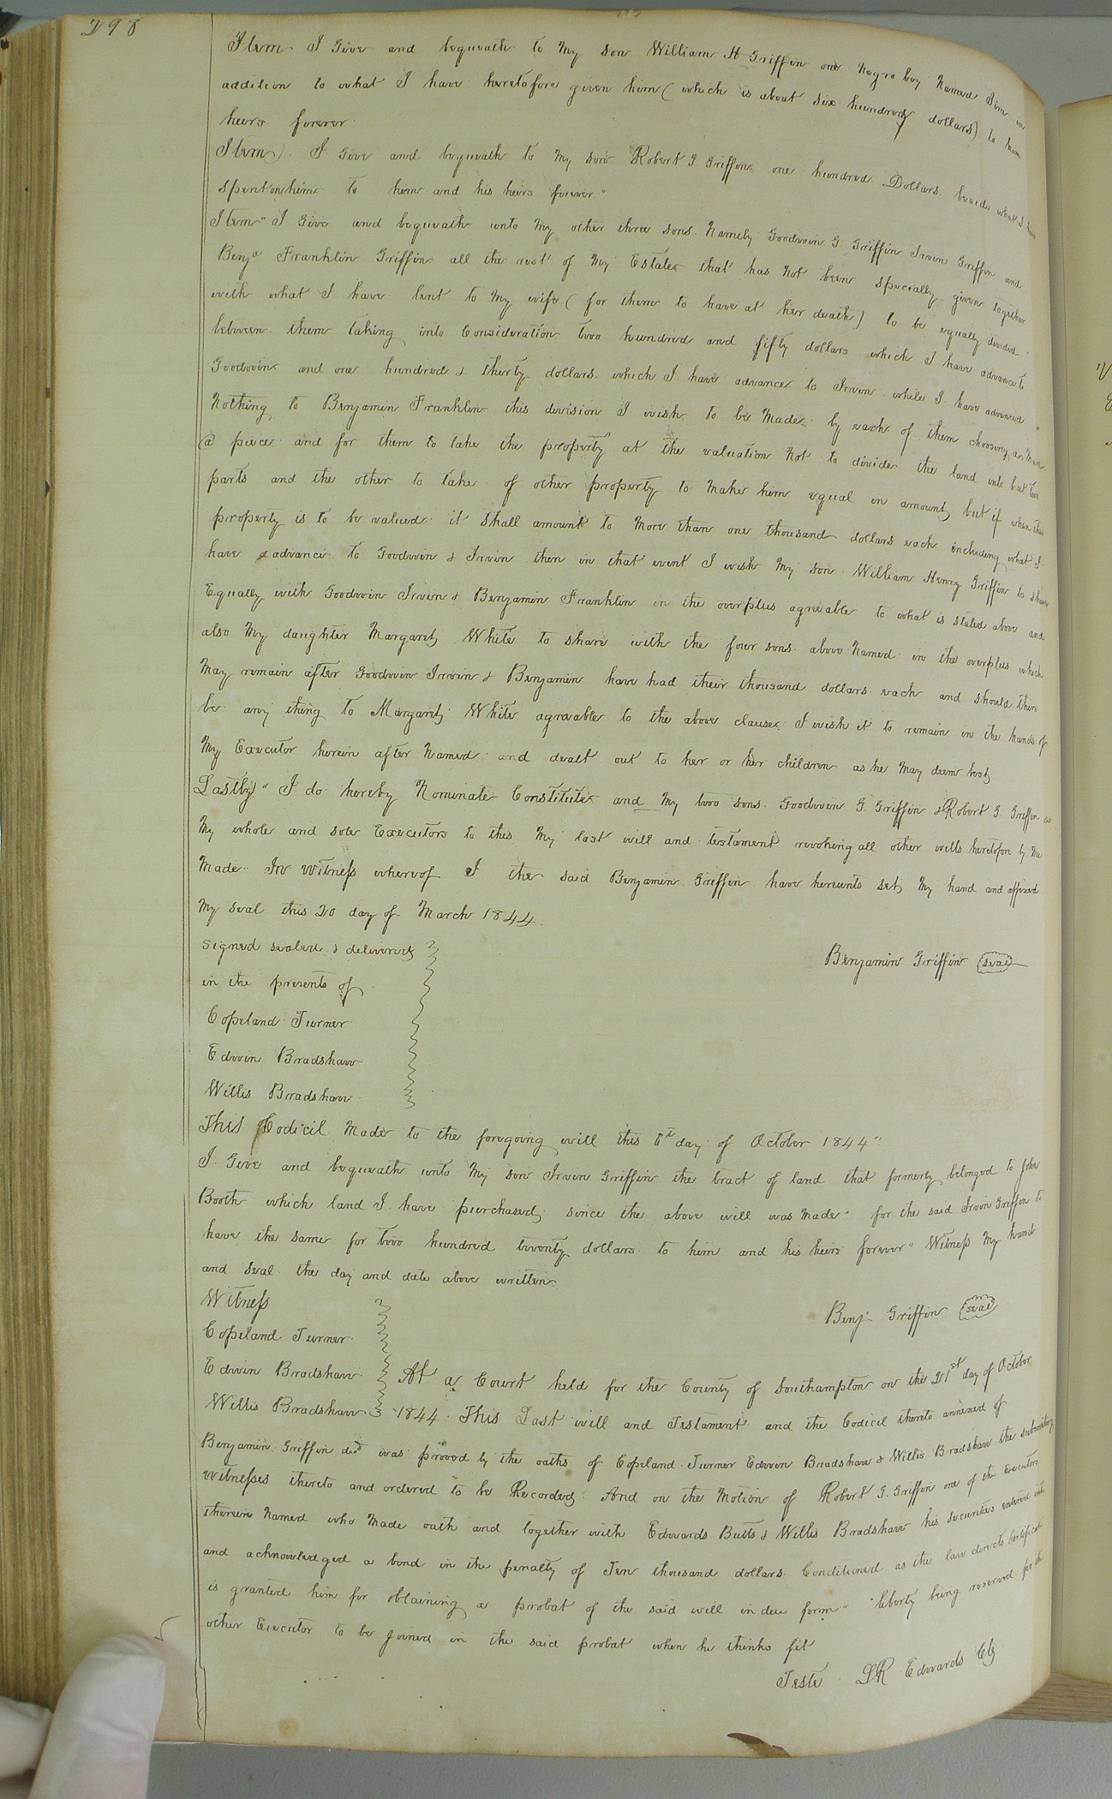 298
Item I Give and bequeath to my son William H Griffin one Negro boy Named Jim in
addition to what I have heretofore given him ( which is about six hundred dollars) to him
heirs forever
Item) I Give and bequeath to My son Robert G Griffin one hundred Dollars beside what I have
spent on him to him and his heirs forever"
Item" I Give and bequeath unto My other three sons Namely Goodwin G. Griffin Irwin Griffin and
Benja Franklin Griffin all the rest of My Estate that has Not been specially given together
with what I have lent to My wife ( for them to have at her death ) to be equally divided
between them taking into Consideration two hundred and fifty dollars which I have advance to
Goodwin and one hundred & thirty dollars which I have advance to Irwin while I have advanced
Nothing to Benjamin Franklin this division I wish to be Made by each of them choosing a Man
a piece and for them to take the property at the valuation Not to divide the land into but two
parts and the other to take of other property to Make him equal in amount, but if when the
property is to be valued it shall amount to More than one thousand dollars each including what I
have advance to Goodwin & Irwin then in that event I wish My son William Henry Griffin to share
Equally with Goodwin Irwin & Benjamin Franklin in the overplus agreeable to what is stated above and
also My daughter Margaret White to share with the four sons above Named in the overplus which
May remain after Goodwin Irwin & Benjamin have had their thousand dollars each and should there
be any thing to Margaret White agreeable to the above clause I wish it to remain in the hands of
My Executor herein after Named and dealt out to her or her children as he May deem best
Lastly" I do hereby Nominate Constitute and My two sons Goodwin G. Griffin & Robert G. Griffin
My whole and sole Executors to this My last will and testament revoking all other wills heretofore by Me
Made In Witness whereof I the said Benjamin Griffin have hereunto set My hand and affixed
My seal this 20 day of March 1844
Signed sealed & delivered
Benjamin Griffin seal
in the presents of
Copeland Turner
Edwin Bradshaw
Willis Bradshaw
This Codicil Made to the foregoing will this 6th day of October 1844"
I Give and bequeath unto My son Irwin Griffin the tract of land that formerly belonged to John
Booth which land I have purchased since the above will was Made" for the said Irwin Griffin to
have the same for two hundred twenty dollars to him and his heirs forever" Witness My hand
and Seal the day and date above written
Witness
Benj Griffin seal
Copeland Turner
Edwin Bradshaw At a Court held for the County of Southampton on the 21st day of October
Willis Bradshaw 1844 This Last will and Testament and the Codicil thereto annexed of
Benjamin Griffin decd was proved by the oaths of Copeland Turner Edwin Bradshaw & Willis Bradshaw the subscribing
Witnesses thereto and ordered to be Recorded And on the Motion of Robert G. Griffin one of the Executors
therein Named who Made oath and together with Edwards Butts & Willis Bradshaw his securities entered into
and acknowledged a bond in the penalty of Ten thousand dollars Conditioned as the law directs Certificate
is granted him for obtaining a probat of the said will in due form" liberty being reserved for the
other Executor to be joined in the said probat when he thinks fit
Teste LR Edwards Clk